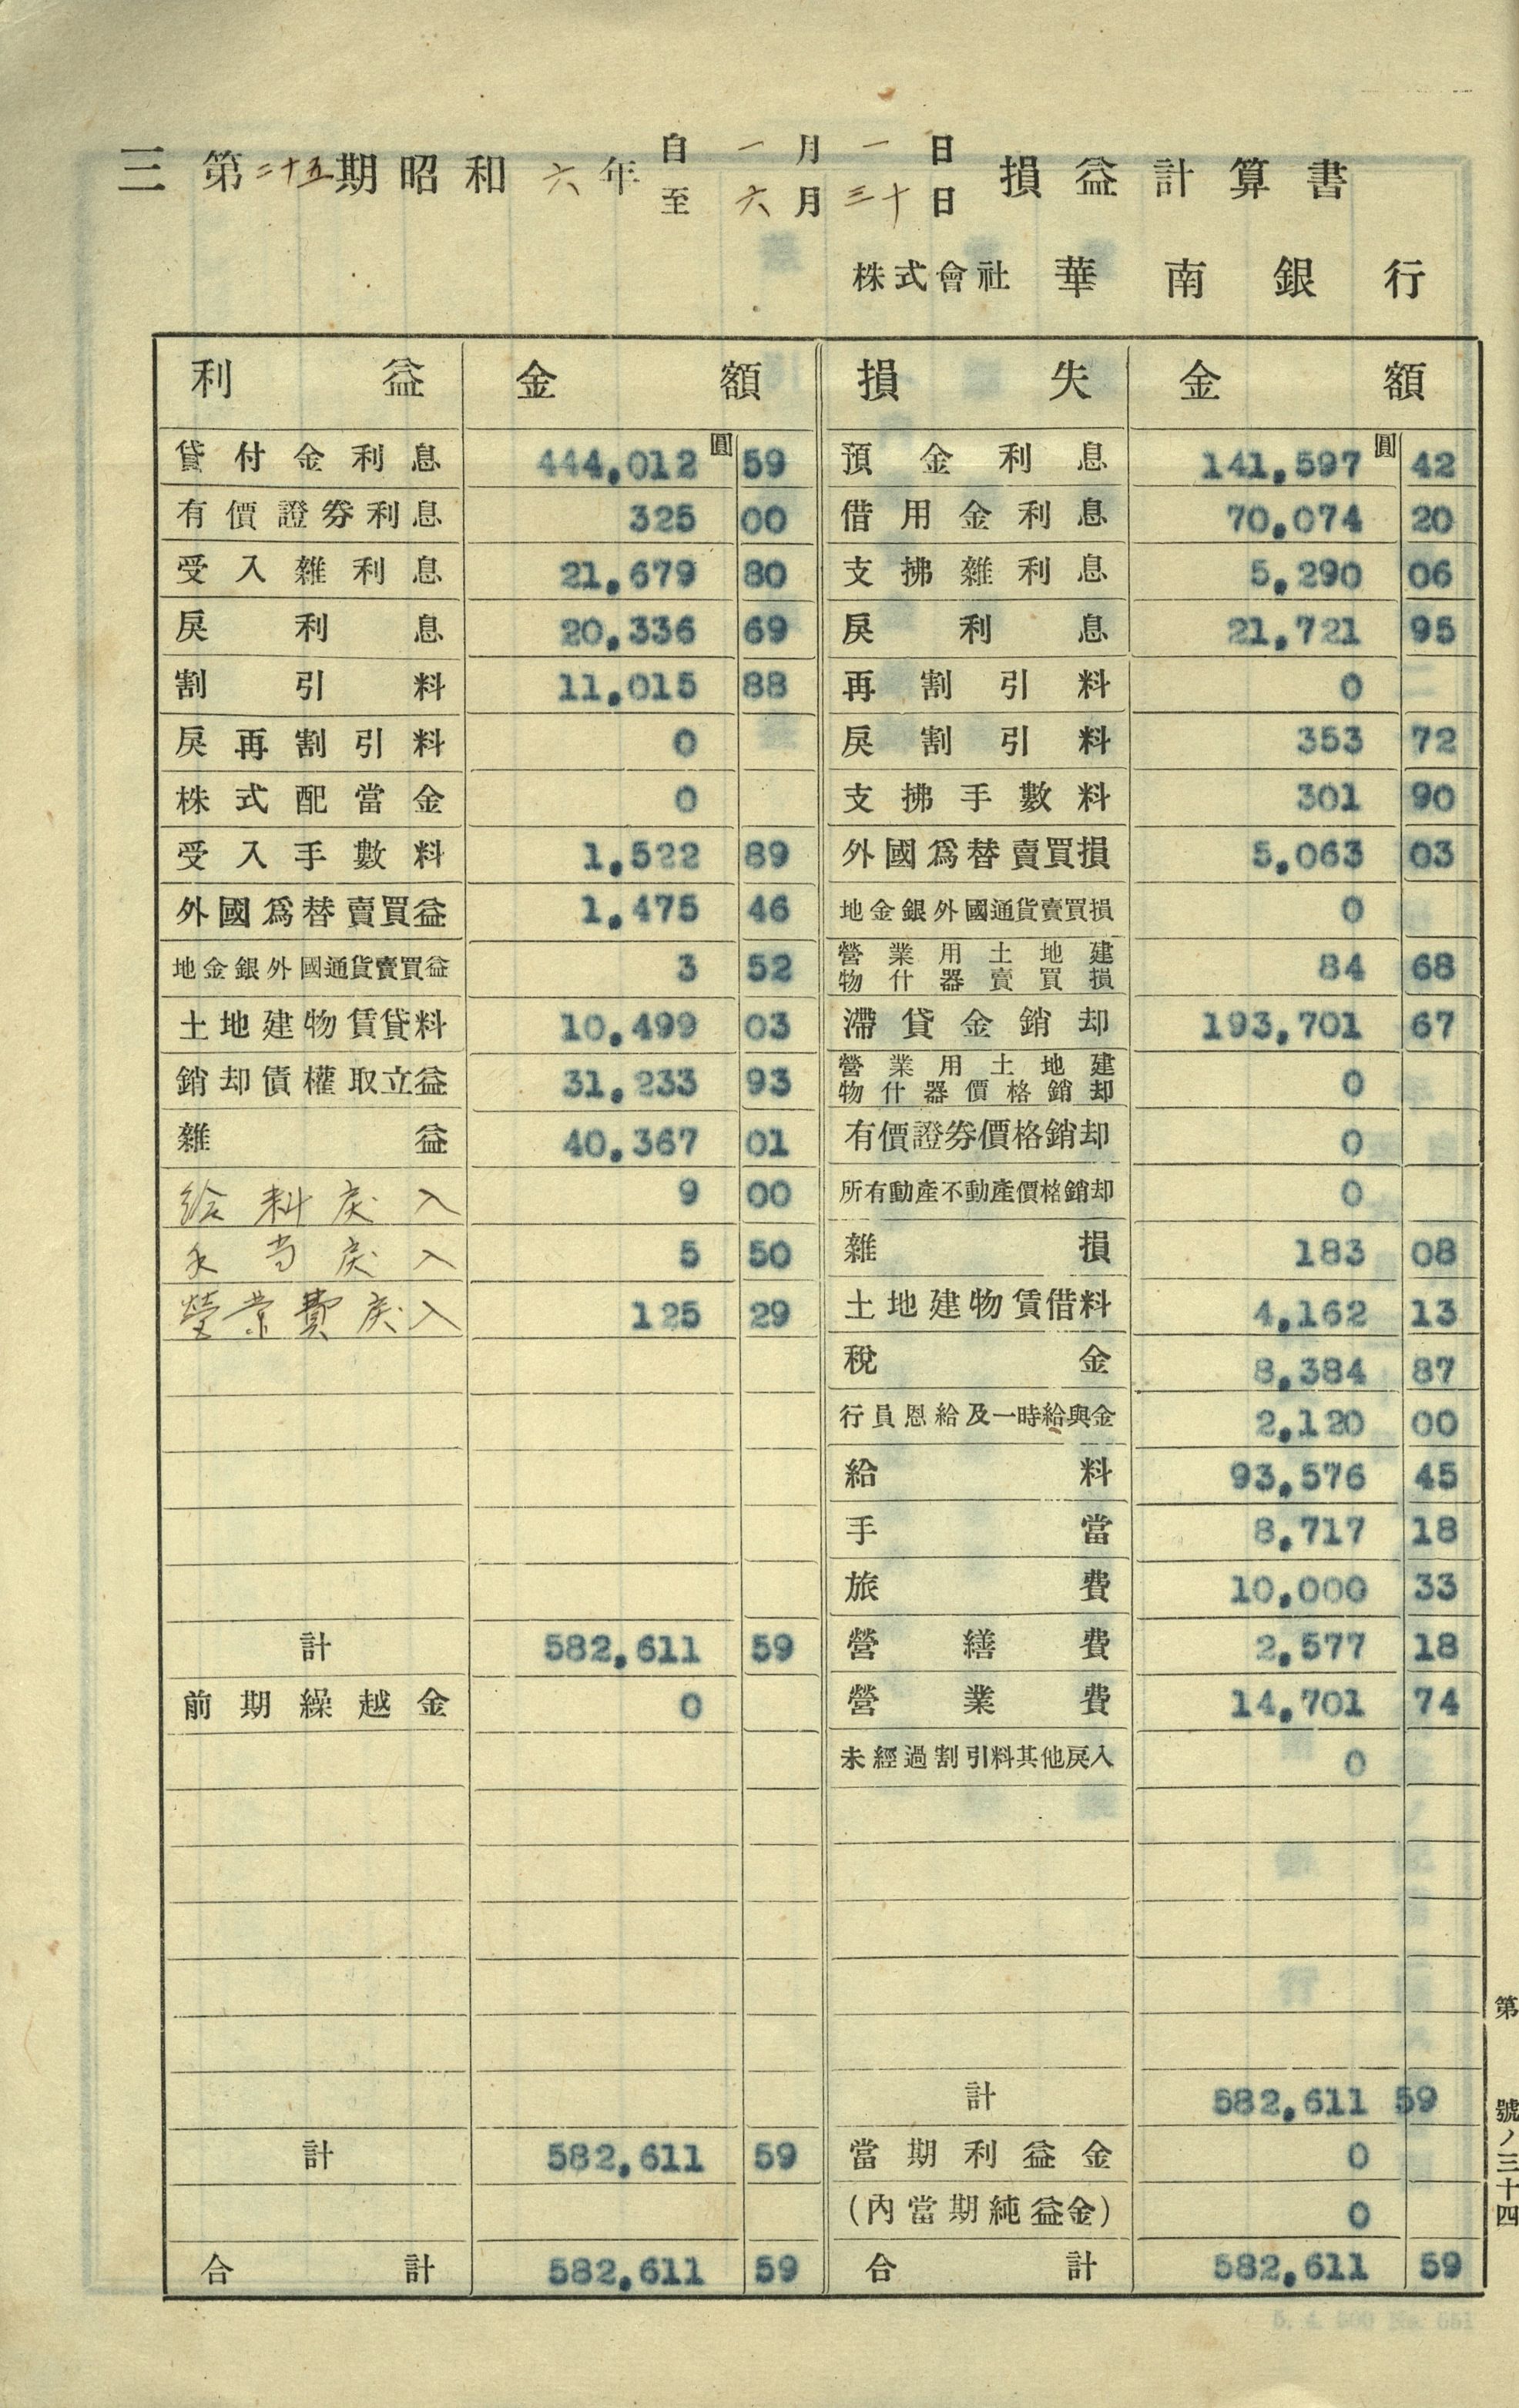 三 第二十五期昭和六年 自一月一日 至六月三十日 損益計算書
株式會社 華南銀行
利益 金額 損失 金額
貸付金利息 444,012圓59 預金利息 141,597圓42
有價證券利息 325 00 借用金利息 70,074 20
受入雜利息 21,679 80 支拂雜利息 5,290 06
戾利息 20,336 69 戾利息 21,721 95
割引料 11,015 88 再割引料 0
戾再割引料 0 戾割引料 353 72
株式配當金 0 支拂手數料 301 90
受入手數料 1,522 89 外國爲替賣買損 5,063 03
外國爲替賣買益 1,475 46 地金銀外國通貨賣買損 0
地金銀外國通貨賣買益 3 52 營業用土地建物什器賣買損 84 68
土地建物賃貸料 10,499 03 滯貸金銷却 193,701 67
銷却債權取立益 31,233 93 營業用土地建物什器價格銷却 0
雜益 40,367 01 有價證券價格銷却 0
給料戾入 9 00 所有動產不動產價格銷却 0
手当戾入 5 50 雜損 183 08
營業費戾入 125 29 土地建物賃借料 4,162 13
稅金 8,384 87
行員恩給及一時給與金 2,120 00
給料 93,576 45
手當 8,717 18
旅費 10,000 33
計 582,611 59 營繕費 2,577 18
前期繰越金 0 營業費 14,701 74
未經過割引料其他戾入 0
計 582,611 59
計 582,611 59 當期利益金 0
(內當期純益金) 0
合計 582,611 59 合計 582,611 59
第 號ノ三十四
5. 4. 500 No. 551